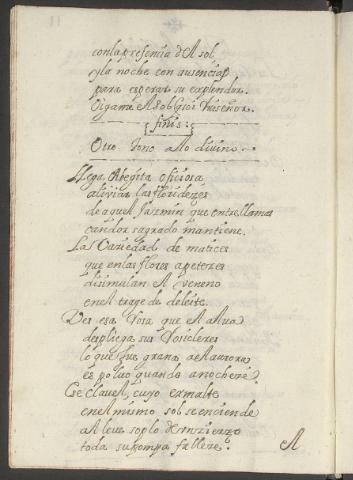 con la presencia del sol
y la noche con ausencias
para esperar su explendor.
Oigame el sol
finis:
Otro tono a lo divino
Llega Abegita oficiosa
a liviar las florideçes
de aquel Jazmin que entre llamas
candor sagrado mantiene.
Las Variedad de matices
que en las flores apeteçes
disimulan el veneno
en el trage de deleite.
Ves esa rosa que al alva
despliega sus rosicleres
lo que fue grana a el aurora
es polvo quando anocheçe
Ese clavel, cuyo exmalte
en el mismo sol se enciende
al leve soplo de un zierzo
toda su pompa falleçe.
el